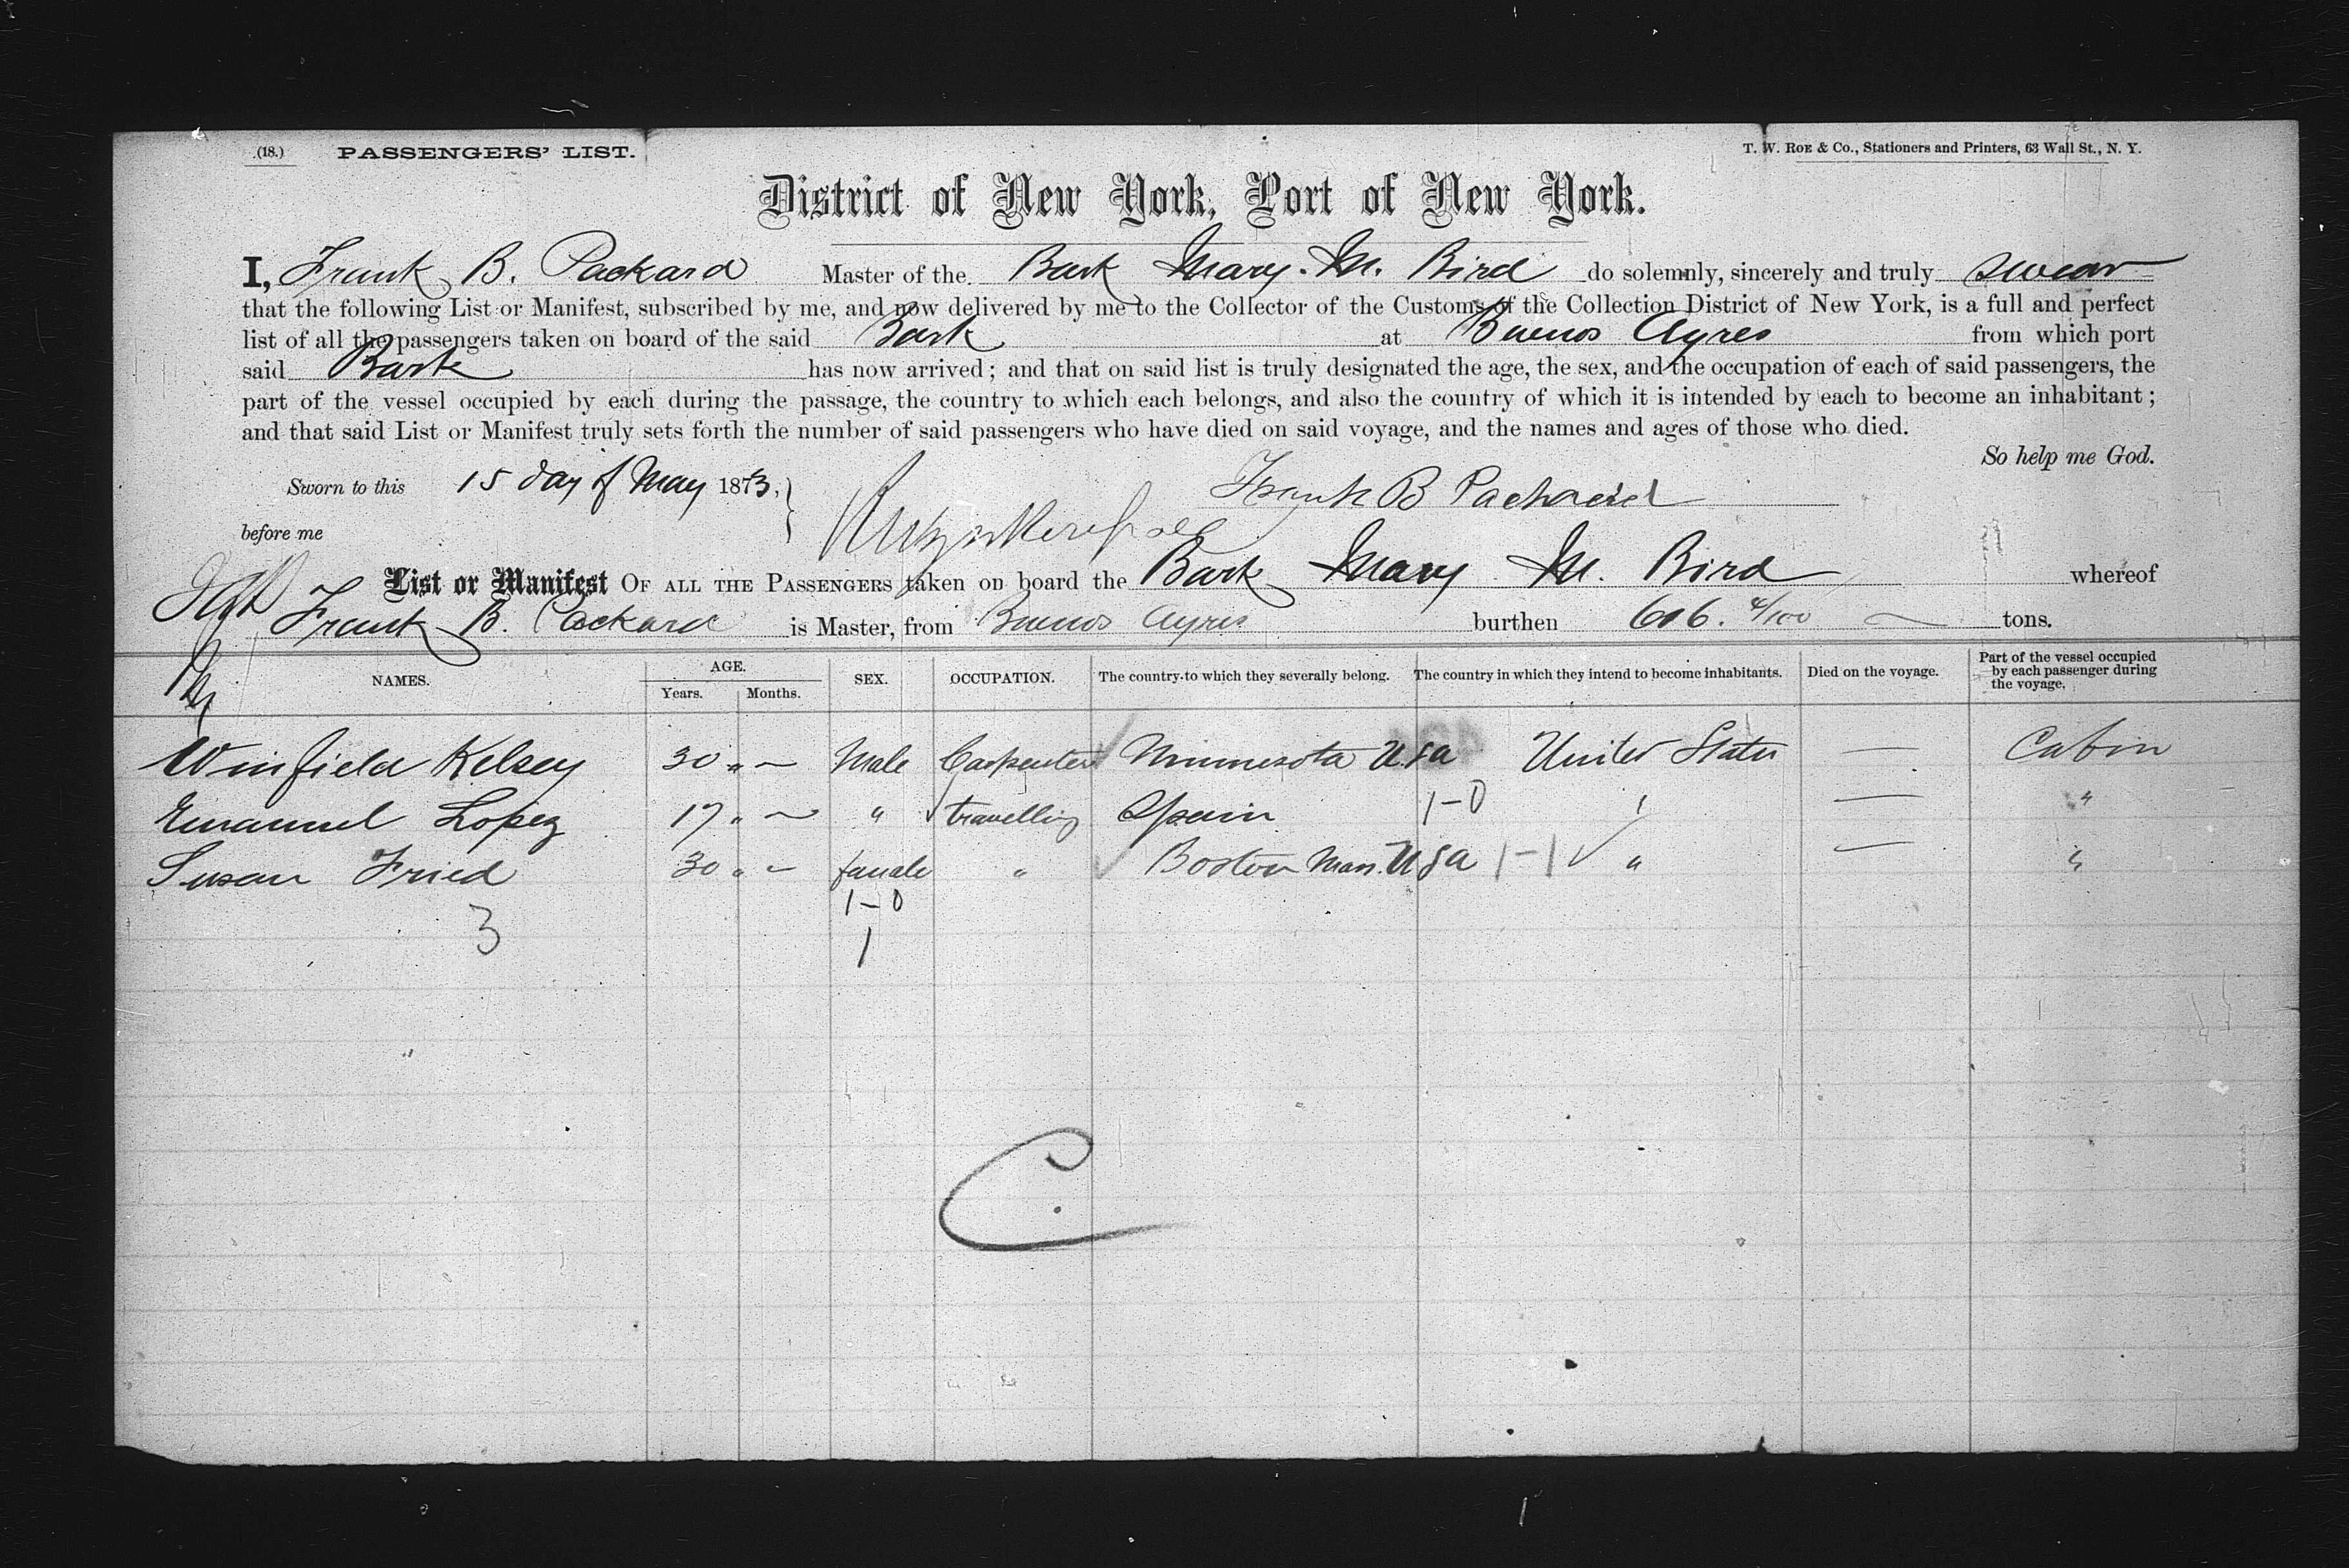 (18.) PASSENGERS' LIST. T. W. ROE & Co., Stationers and Printers, 63 Wall St., N. Y.
District of New York, Port of New York.
I, Frank B. Packard Master of the Bark Mary M. Bird do solemnly, sincerely and truly swear
that the following List or Manifest, subscribed by me, and now delivered by me to the Collector of the Customs of the Collection District of New York, is a full and perfect
list of all the passengers taken on board of the said Bark at Buenos Ayres from which port
said Bark has now arrived; and that on said list is truly designated the age, the sex, and the occupation of each of said passengers, the
part of the vessel occupied by each during the passage, the country to which each belongs, and also the country of which it is intended by each to become an inhabitant;
and that said List or Manifest truly sets forth the number of said passengers who have died on said voyage, and the names and ages of those who died.
So help me God.
Sworn to this 15 day of May 1873, Frank B Packard
before me
List or Manifest OF ALL THE PASSENGERS taken on board the Bark Mary M. Bird whereof
Frank B. Packard is Master, from Buenos Ayres burthen 606. 4/100 tons.
NAMES. AGE. Years. Months. SEX. OCCUPATION. The country to which they severally belong. The country in which they intend to become inhabitants. Died on the voyage. Part of the vessel occupied by each passenger during the voyage.
Winfield Kelsey 30 " — Male Carpenter Minnesota U.S.a United States — Cabin
Emanuel Lopez 17 " — " travelling Spain 1-0 " — "
Susan Fried 30 " — female " Boston Mass. U S a 1-1 " — "
1-0
3 1
C